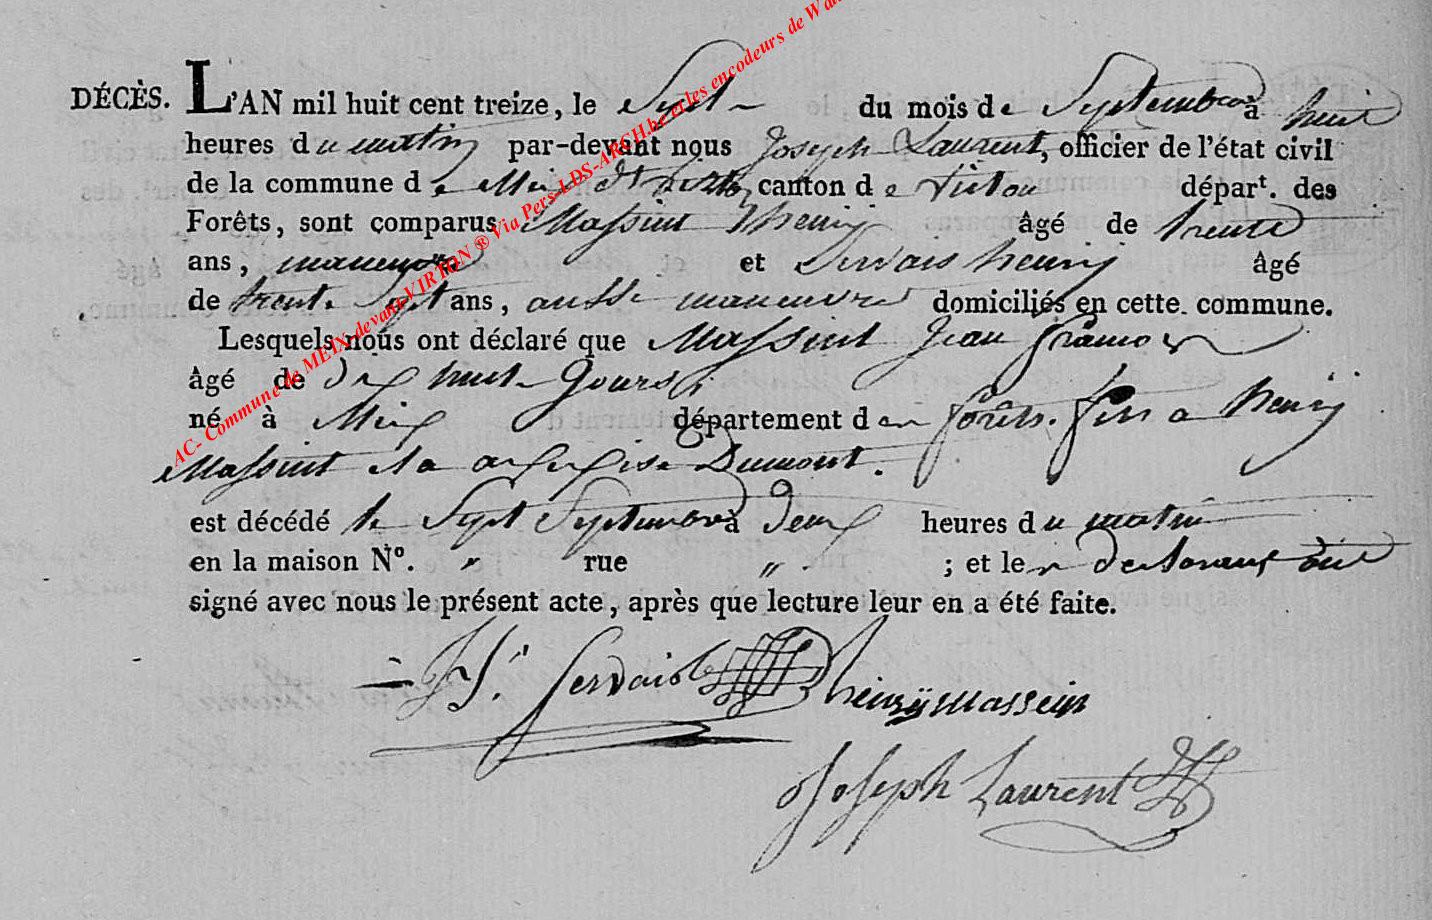 DÉCÈS. L'AN mil huit cent treize, le Sept du mois de Septembre à huit
heures du matin par-devant nous Joseph Laurent, officier de l'état civil
de la commune de Meix dt virton canton de virton départ. des
Forêts, sont comparus Massint henrij âgé de trente
ans, maneuvre et Servais henrij âgé
de trente Sept ans, aussi maneuvre domiciliés en cette commune.
Lesquels nous ont déclaré que Massint Jean françois
âgé de dix huit Jours
né à Meix département des forêts. fils a henrij
Massint et a Dumont.
est décédé le Sept Septembre à deux heures du matin
en la maison N°. " rue " ; et les declarans ont
signé avec nous le présent acte, après que lecture leur en a été faite.
Servais
henrÿ massein
Joseph Laurent
AC- Commune de MEIX-devant-VIRTON ® Via Pers-LDS-ARCH.be et les encodeurs de Wa